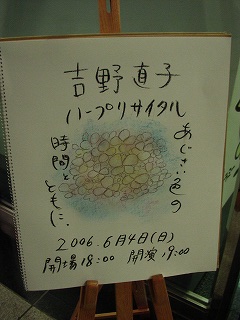 吉野直子
ハープリサイタル
あじさい色の
時間と
ともに.
2006.6月4日(日)
開場18:00 開演19:00